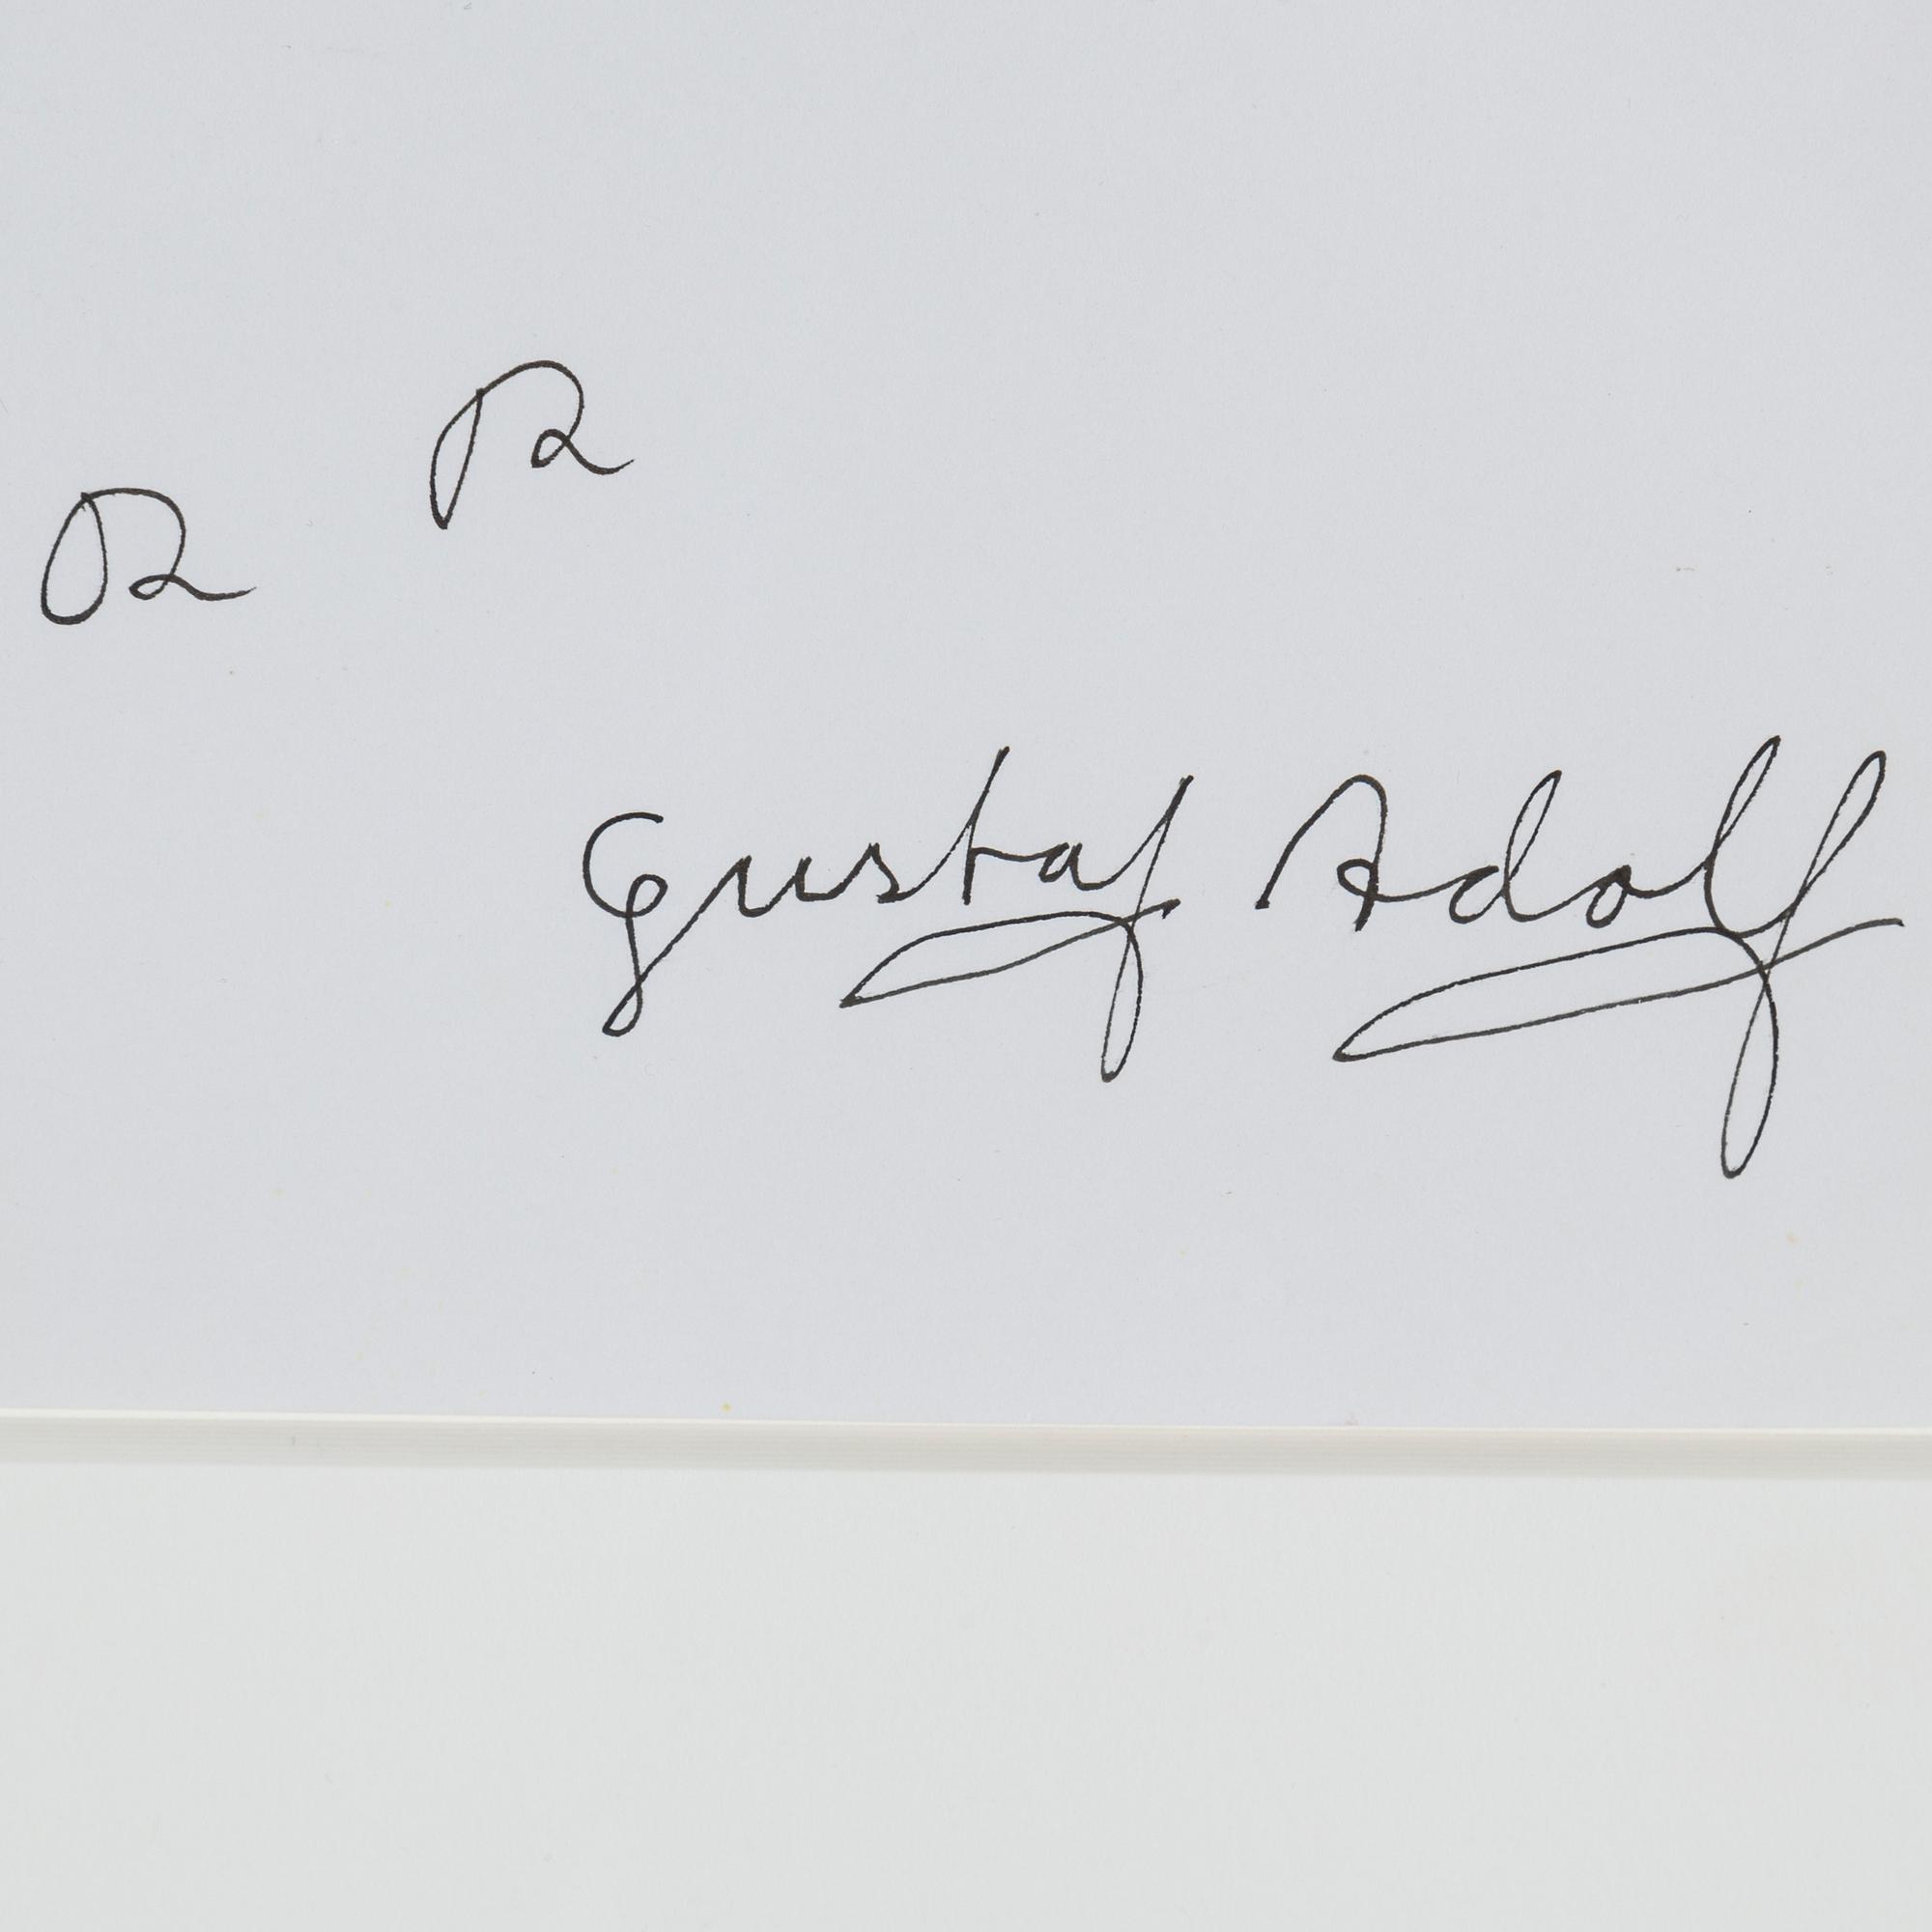 R R
Gustaf Adolf